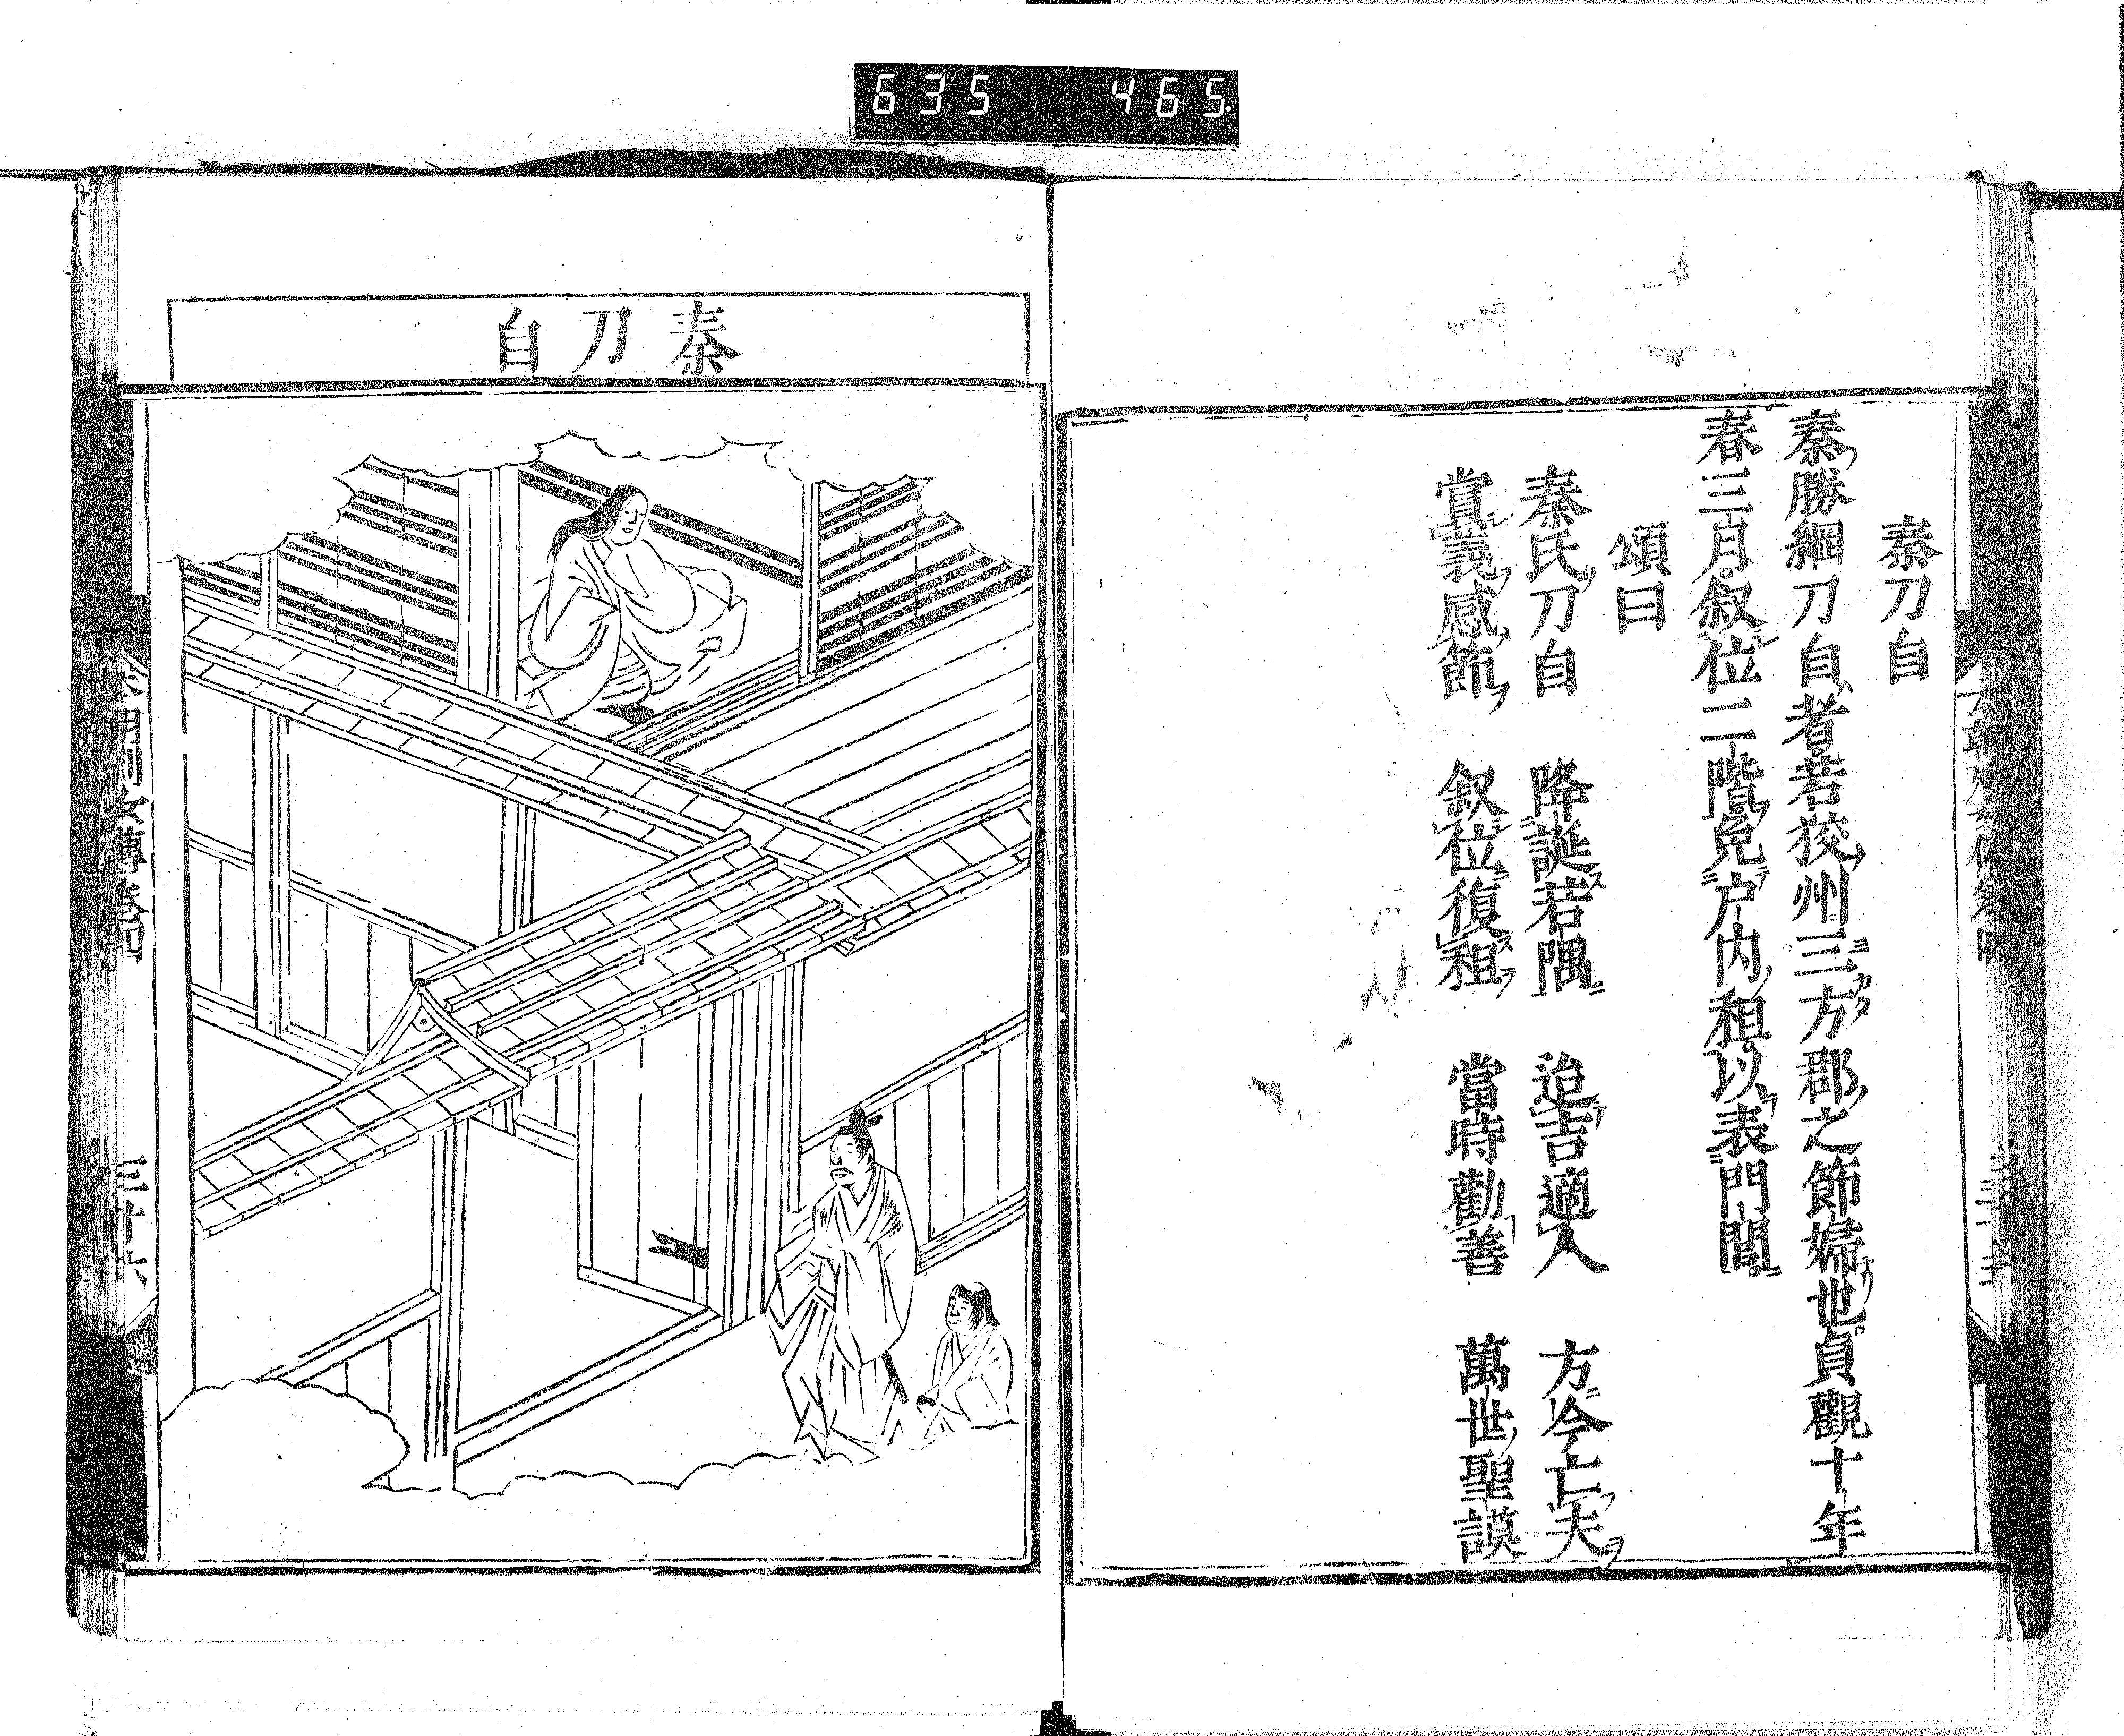 635 465
秦刀自
秦勝綱刀自者若狹州三方郡之節婦也貞觀十年
春三月叙位二階免户内租以表門閭
頌曰
秦氏刀自 降誕若隅 迨吉適人 方今亡夫
賞義感節 叙位復租 當時勸善 萬世聖謨
秦刀自
列女傳卷四
三十六